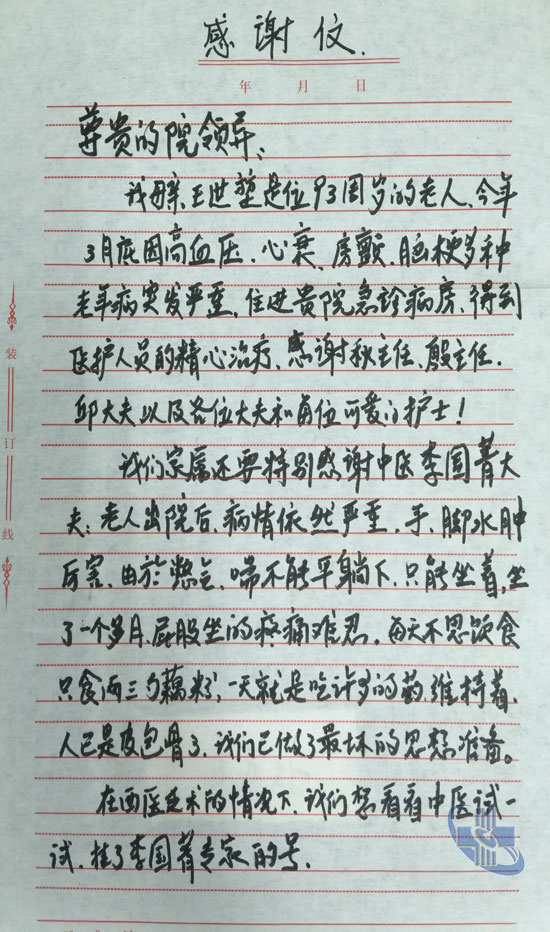 感谢仪.
年 月 日
尊贵的院领导:
我母亲、王世堃是位93周岁的老人、今年
3月底因高血压、心衰、房颤、脑梗多种
老年病突发严重,住进贵院急诊病房、得到
医护人员的精心治疗、感谢秋主任、殷主任、
邱大夫以及各位大夫和每位可爱的护士!
我们家属还要特别感谢中医李国菁大
夫:老人出院后、病情依然严重、手、脚水肿
厉害、由於憋气、喘不能平躺下、只能坐着,坐
了一个多月、屁股坐的疼痛难忍、每天不思饮食
只食两三勺藕粉,一天就是吃许多的药维持着、
人已是皮包骨了、我们已做了最坏的思想准备。
在西医乏术的情况下、我们想看看中医试一
试、挂了李国菁专家的号、
装
订
线